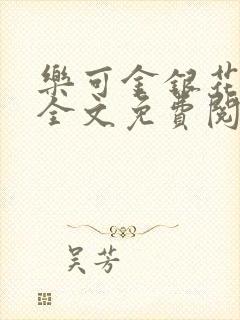 樂可金銀花
全文免費閱
吴芳